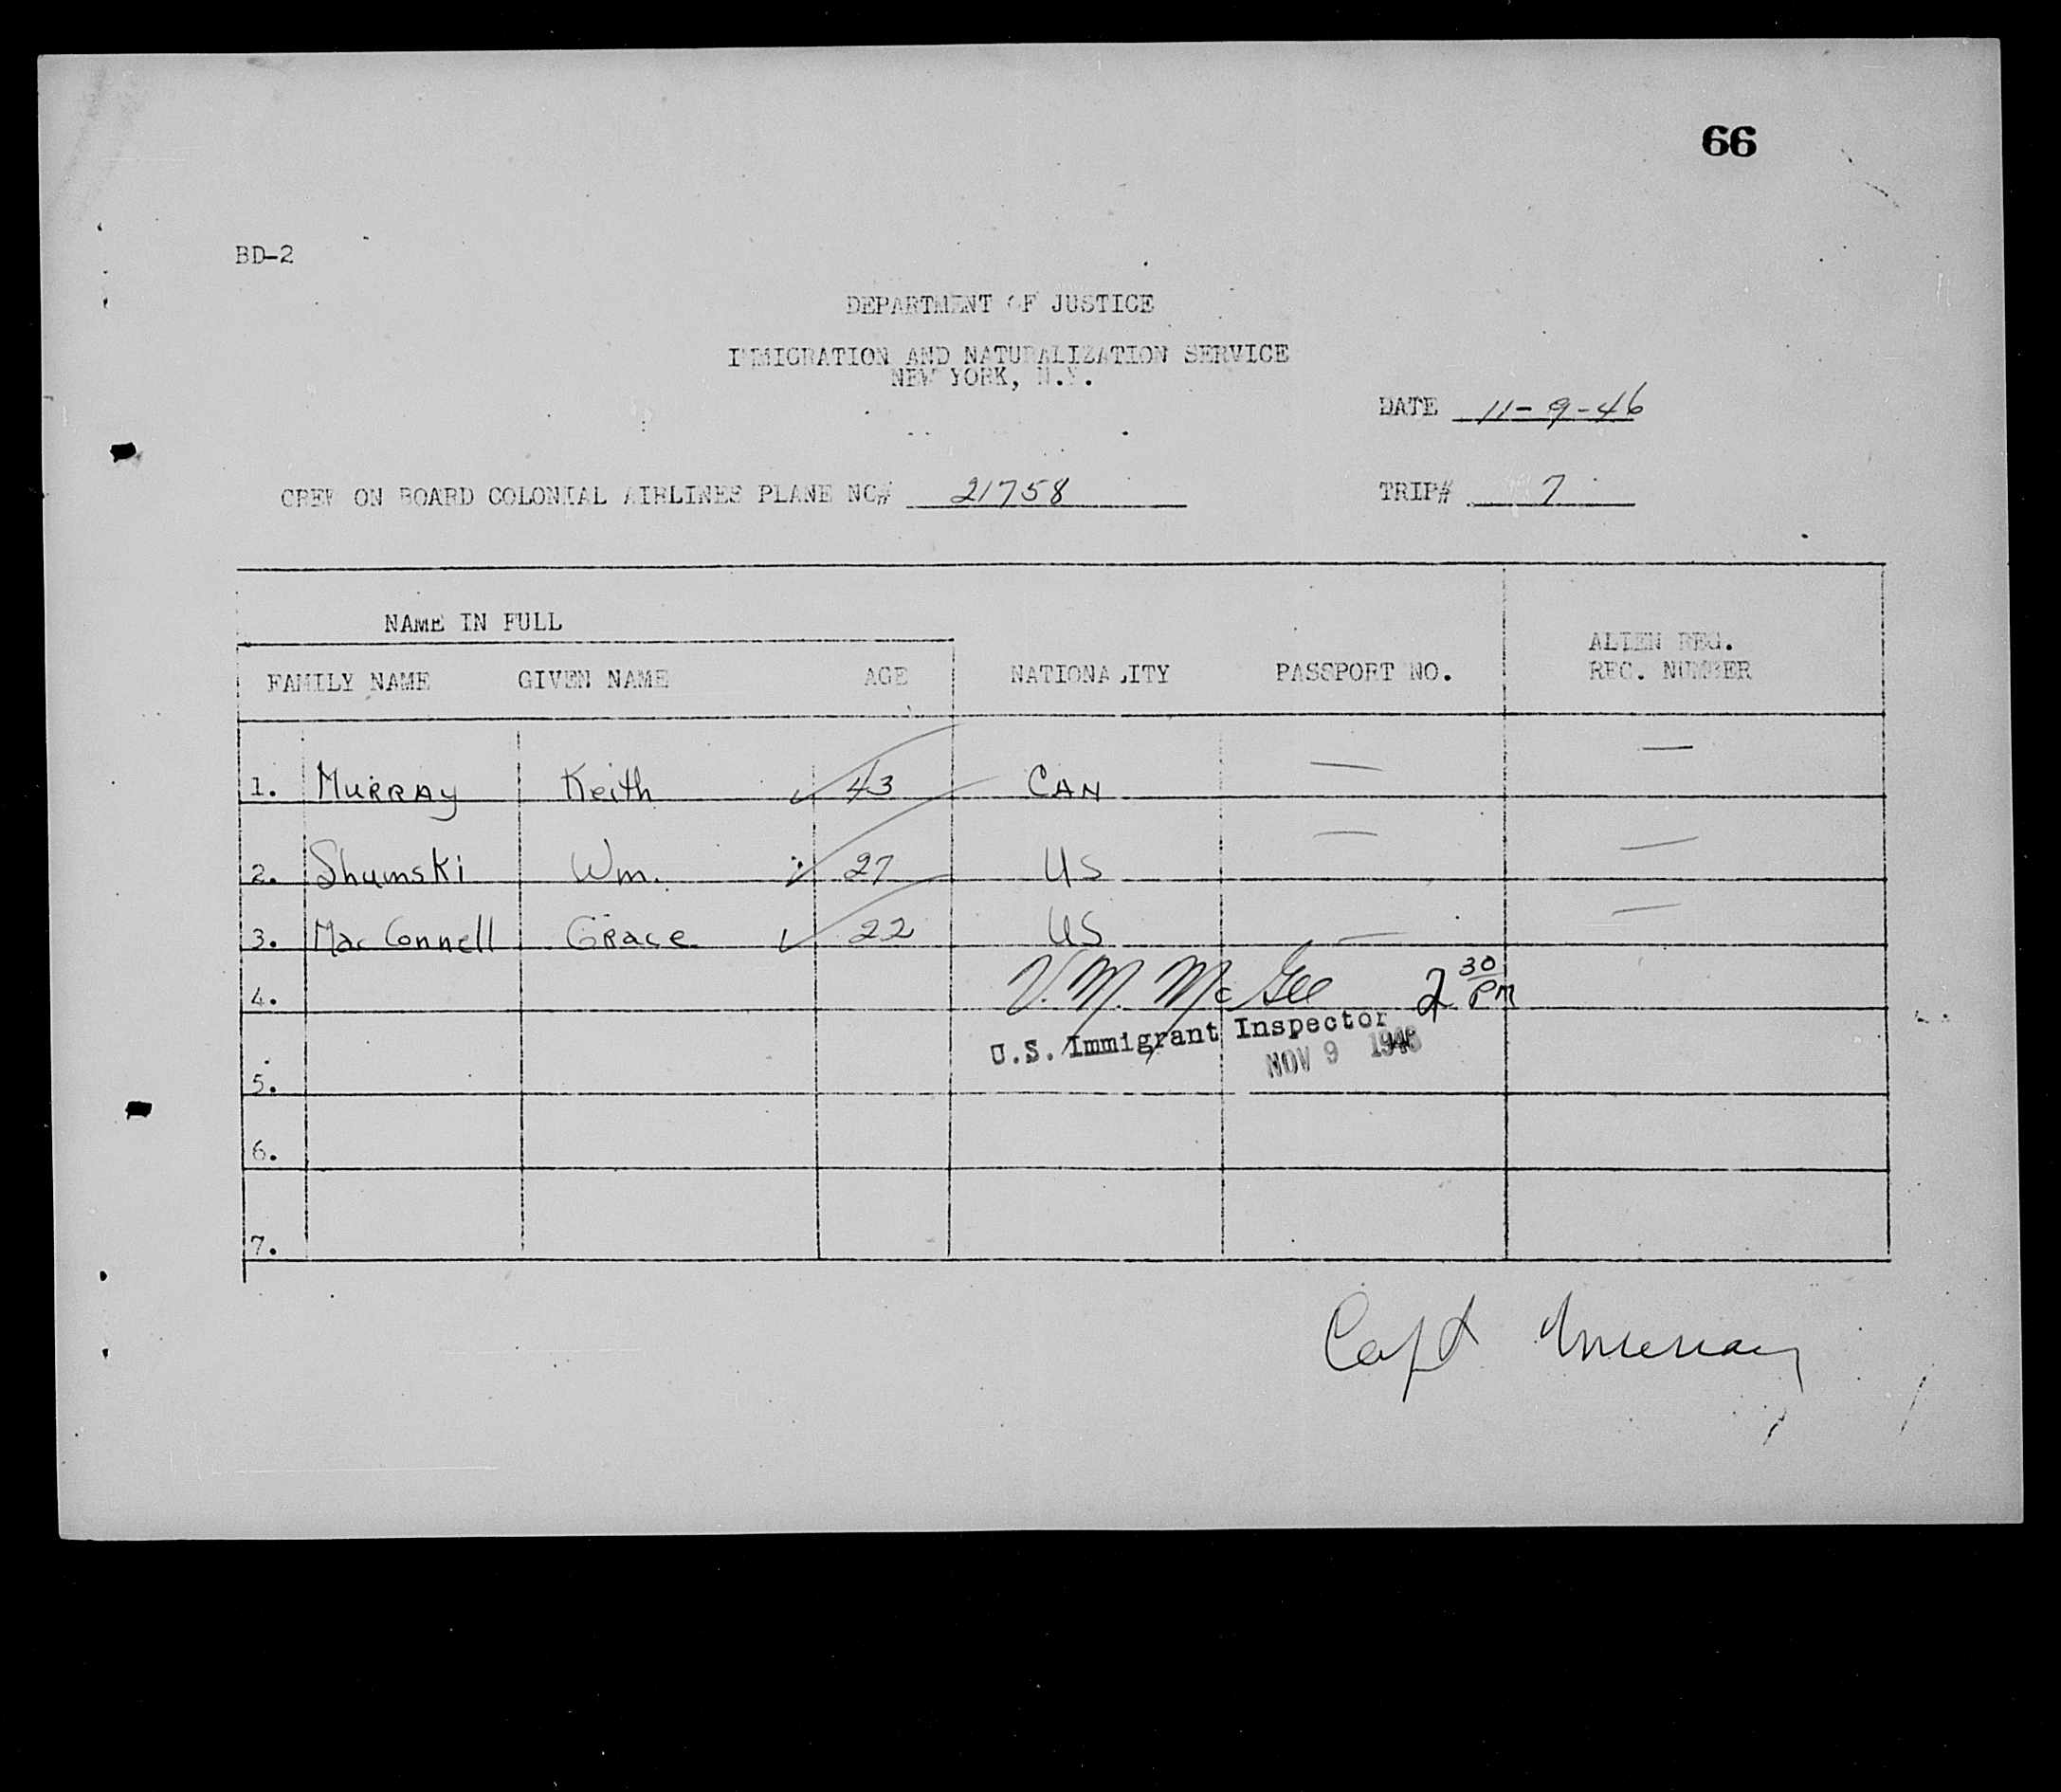 66
BD-2
DEPARTMENT OF JUSTICE
IMMIGRATION AND NATURALIZATION SERVICE
NEW YORK, N.Y.
DATE 11-9-46
CREW ON BOARD COLONIAL AIRLINES PLANE NC# 21758 TRIP# 7
NAME IN FULL
ALIEN REG.
FAMILY NAME GIVEN NAME AGE NATIONALITY PASSPORT NO. REC. NUMBER
1. MURRAY Keith ✓ 43 CAN — —
2. Shumski Wm. ✓ 27 US — —
3. MacConnell Grace ✓ 22 US — —
4. V. M. McGee 2 30 PM
U.S. Immigrant Inspector
NOV 9 1946
5.
6.
7.
Capt Murray